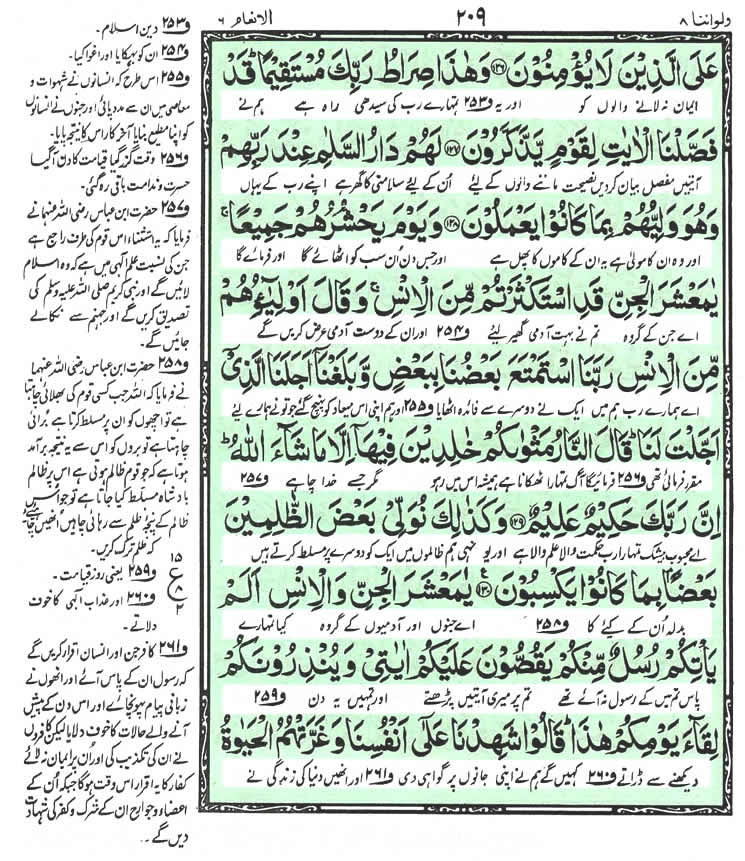 ولواننا ٨
٢٠٩
الانعام ٦
عَلَى الَّذِيْنَ لَا يُؤْمِنُوْنَ ﴿۱۲۵﴾ وَهٰذَا صِرَاطُ رَبِّكَ مُسْتَقِيْمًا ؕ قَدْ
ایمان نہ لانے والوں کو اور یہ و۲۵۳ تمہارے رب کی سیدھی راہ ہے ہم نے
فَصَّلْنَا الْاٰيٰتِ لِقَوْمٍ يَّذَّكَّرُوْنَ ﴿۱۲۶﴾ لَهُمْ دَارُ السَّلٰمِ عِنْدَ رَبِّهِمْ
آیتیں مفصل بیان کردیں نصیحت ماننے والوں کے لیئے اُن کے لیئے سلامتی کا گھر ہے اپنے رب کے یہاں
وَهُوَ وَلِيُّهُمْ بِمَا كَانُوْا يَعْمَلُوْنَ ﴿۱۲۷﴾ وَيَوْمَ يَحْشُرُهُمْ جَمِيْعًا ۚ
اور وہ ان کا مولیٰ ہے یہ ان کے کاموں کا پھل ہے اور جس دن اُن سب کو اٹھائے گا اور فرمائے گا
يٰمَعْشَرَ الْجِنِّ قَدِ اسْتَكْثَرْتُمْ مِّنَ الْاِنْسِ ۚ وَقَالَ اَوْلِيٰٓؤُهُمْ
اے جن کے گروہ تم نے بہت آدمی گھیر لیئے و۲۵۴ اور ان کے دوست آدمی عرض کریں گے
مِّنَ الْاِنْسِ رَبَّنَا اسْتَمْتَعَ بَعْضُنَا بِبَعْضٍ وَّبَلَغْنَآ اَجَلَنَا الَّذِيْٓ
اے ہمارے رب ہم میں ایک نے دوسرے سے فائدہ اٹھایا و۲۵۵ اور ہم اپنی اس میعاد کو پہنچ گئے جو تونے ہمارے لیئے
اَجَّلْتَ لَنَا ؕ قَالَ النَّارُ مَثْوٰىكُمْ خٰلِدِيْنَ فِيْهَآ اِلَّا مَا شَآءَ اللّٰهُ ؕ
مقرر فرمائی تھی و۲۵۶ فرمائیگا آگ تمہارا ٹھکانا ہے ہمیشہ اس میں رہو مگر جسے خدا چاہے و۲۵۷
اِنَّ رَبَّكَ حَكِيْمٌ عَلِيْمٌ ﴿۱۲۸﴾ وَكَذٰلِكَ نُوَلِّيْ بَعْضَ الظّٰلِمِيْنَ
اے محبوب بیشک تمہارا رب حکمت والا علم والا ہے اور یونہی ہم ظالموں میں ایک کو دوسرے پر مسلط کرتے ہیں
بَعْضًاۢ بِمَا كَانُوْا يَكْسِبُوْنَ ﴿۱۲۹﴾ يٰمَعْشَرَ الْجِنِّ وَالْاِنْسِ اَلَمْ
بدلہ اُن کے کیئے کا و۲۵۸ اے جنوں اور آدمیوں کے گروہ کیا تمہارے
يَاْتِكُمْ رُسُلٌ مِّنْكُمْ يَقُصُّوْنَ عَلَيْكُمْ اٰيٰتِيْ وَيُنْذِرُوْنَكُمْ
پاس تم میں کے رسول نہ آئے تھے تم پر میری آیتیں پڑھتے اور تمہیں یہ دن و۲۵۹
لِقَآءَ يَوْمِكُمْ هٰذَا ؕ قَالُوْا شَهِدْنَا عَلٰٓى اَنْفُسِنَا وَغَرَّتْهُمُ الْحَيٰوةُ
دیکھنے سے ڈراتے و۲۶۰ کہیں گے ہم نے اپنی جانوں پر گواہی دی و۲۶۱ اور انھیں دنیا کی زندگی نے
و۲۵۳ دین اسلام۔
و۲۵۴ ان کو بہکایا اور اغوا کیا۔
و۲۵۵ اس طرح کہ انسانوں نے شہوات و
معاصی میں ان سے مدد پائی اور جنوں نے انسانوں
کو اپنا مطیع بنایا آخر کار اس کا نتیجہ پایا۔
و۲۵۶ وقت گزر گیا قیامت کا دن آگیا
حسرت و ندامت باقی رہ گئی۔
و۲۵۷ حضرت ابن عباس رضی اللہ عنہما نے
فرمایا کہ یہ استثناء اس قوم کی طرف راجع ہے
جن کی نسبت علم الٰہی میں ہے کہ وہ اسلام
لائیں گے اور نبی کریم صلی اللہ علیہ وسلم کی
تصدیق کریں گے اور جہنم سے نکالے
جائیں گے۔
و۲۵۸ حضرت ابن عباس رضی اللہ عنہما
نے فرمایا کہ اللہ جب کسی قوم کی بھلائی چاہتا
ہے تو اچھوں کو ان پر مسلط کرتا ہے برائی
چاہتا ہے تو بروں کو اس سے یہ نتیجہ برآمد
ہوتا ہے کہ جو قوم ظالم ہوتی ہے اس پر ظالم
بادشاہ مسلط کیا جاتا ہے تو جو اس
ظالم کے پنجۂ ظلم سے رہائی چاہیں انھیں چاہیئے
کہ ظلم ترک کریں۔
۱۵
ع
۸
۲
و۲۵۹ یعنی روز قیامت۔
و۲۶۰ اور عذاب الٰہی کا خوف
دلاتے۔
و۲۶۱ کافر جن اور انسان اقرار کریں گے
کہ رسول ان کے پاس آئے اور انھوں نے
زبانی پیام پہونچائے اور اس دن کے پیش
آنے والے حالات کا خوف دلایا لیکن کافروں
نے ان کی تکذیب کی اور اُن پر ایمان نہ لائے
کفار کا یہ اقرار اس وقت ہوگا جبکہ اُن کے
اعضاء و جوارح ان کے شرک و کفر کی شہادت
دیں گے۔